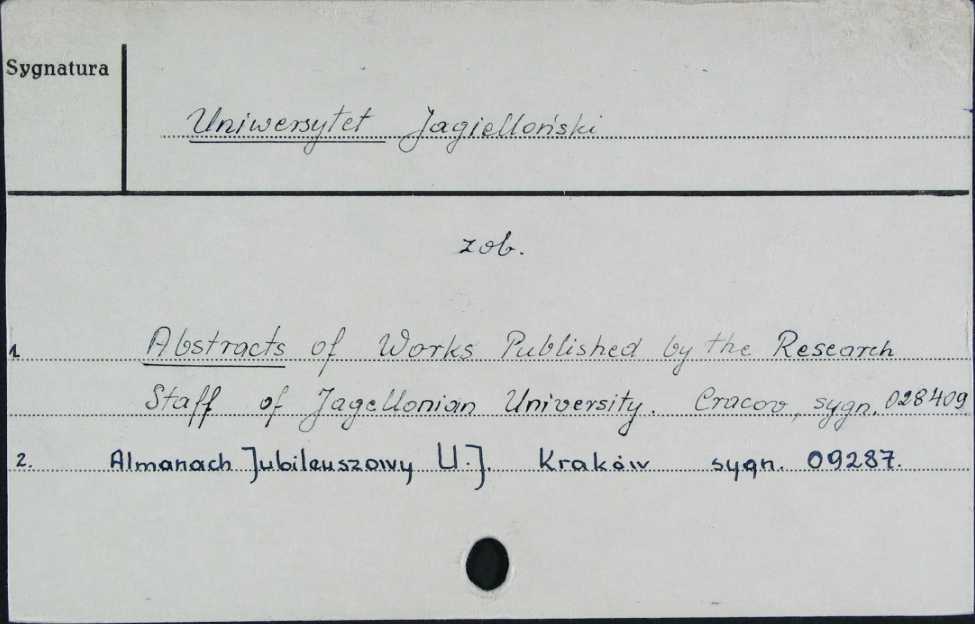 Sygnatura
Uniwersytet Jagielloński
zob.
1. Abstracts of Works Published by the Research
Staff of Jagellonian University. Cracow, sygn. 028409
2. Almanach Jubileuszowy U.J. Kraków sygn. 09287.